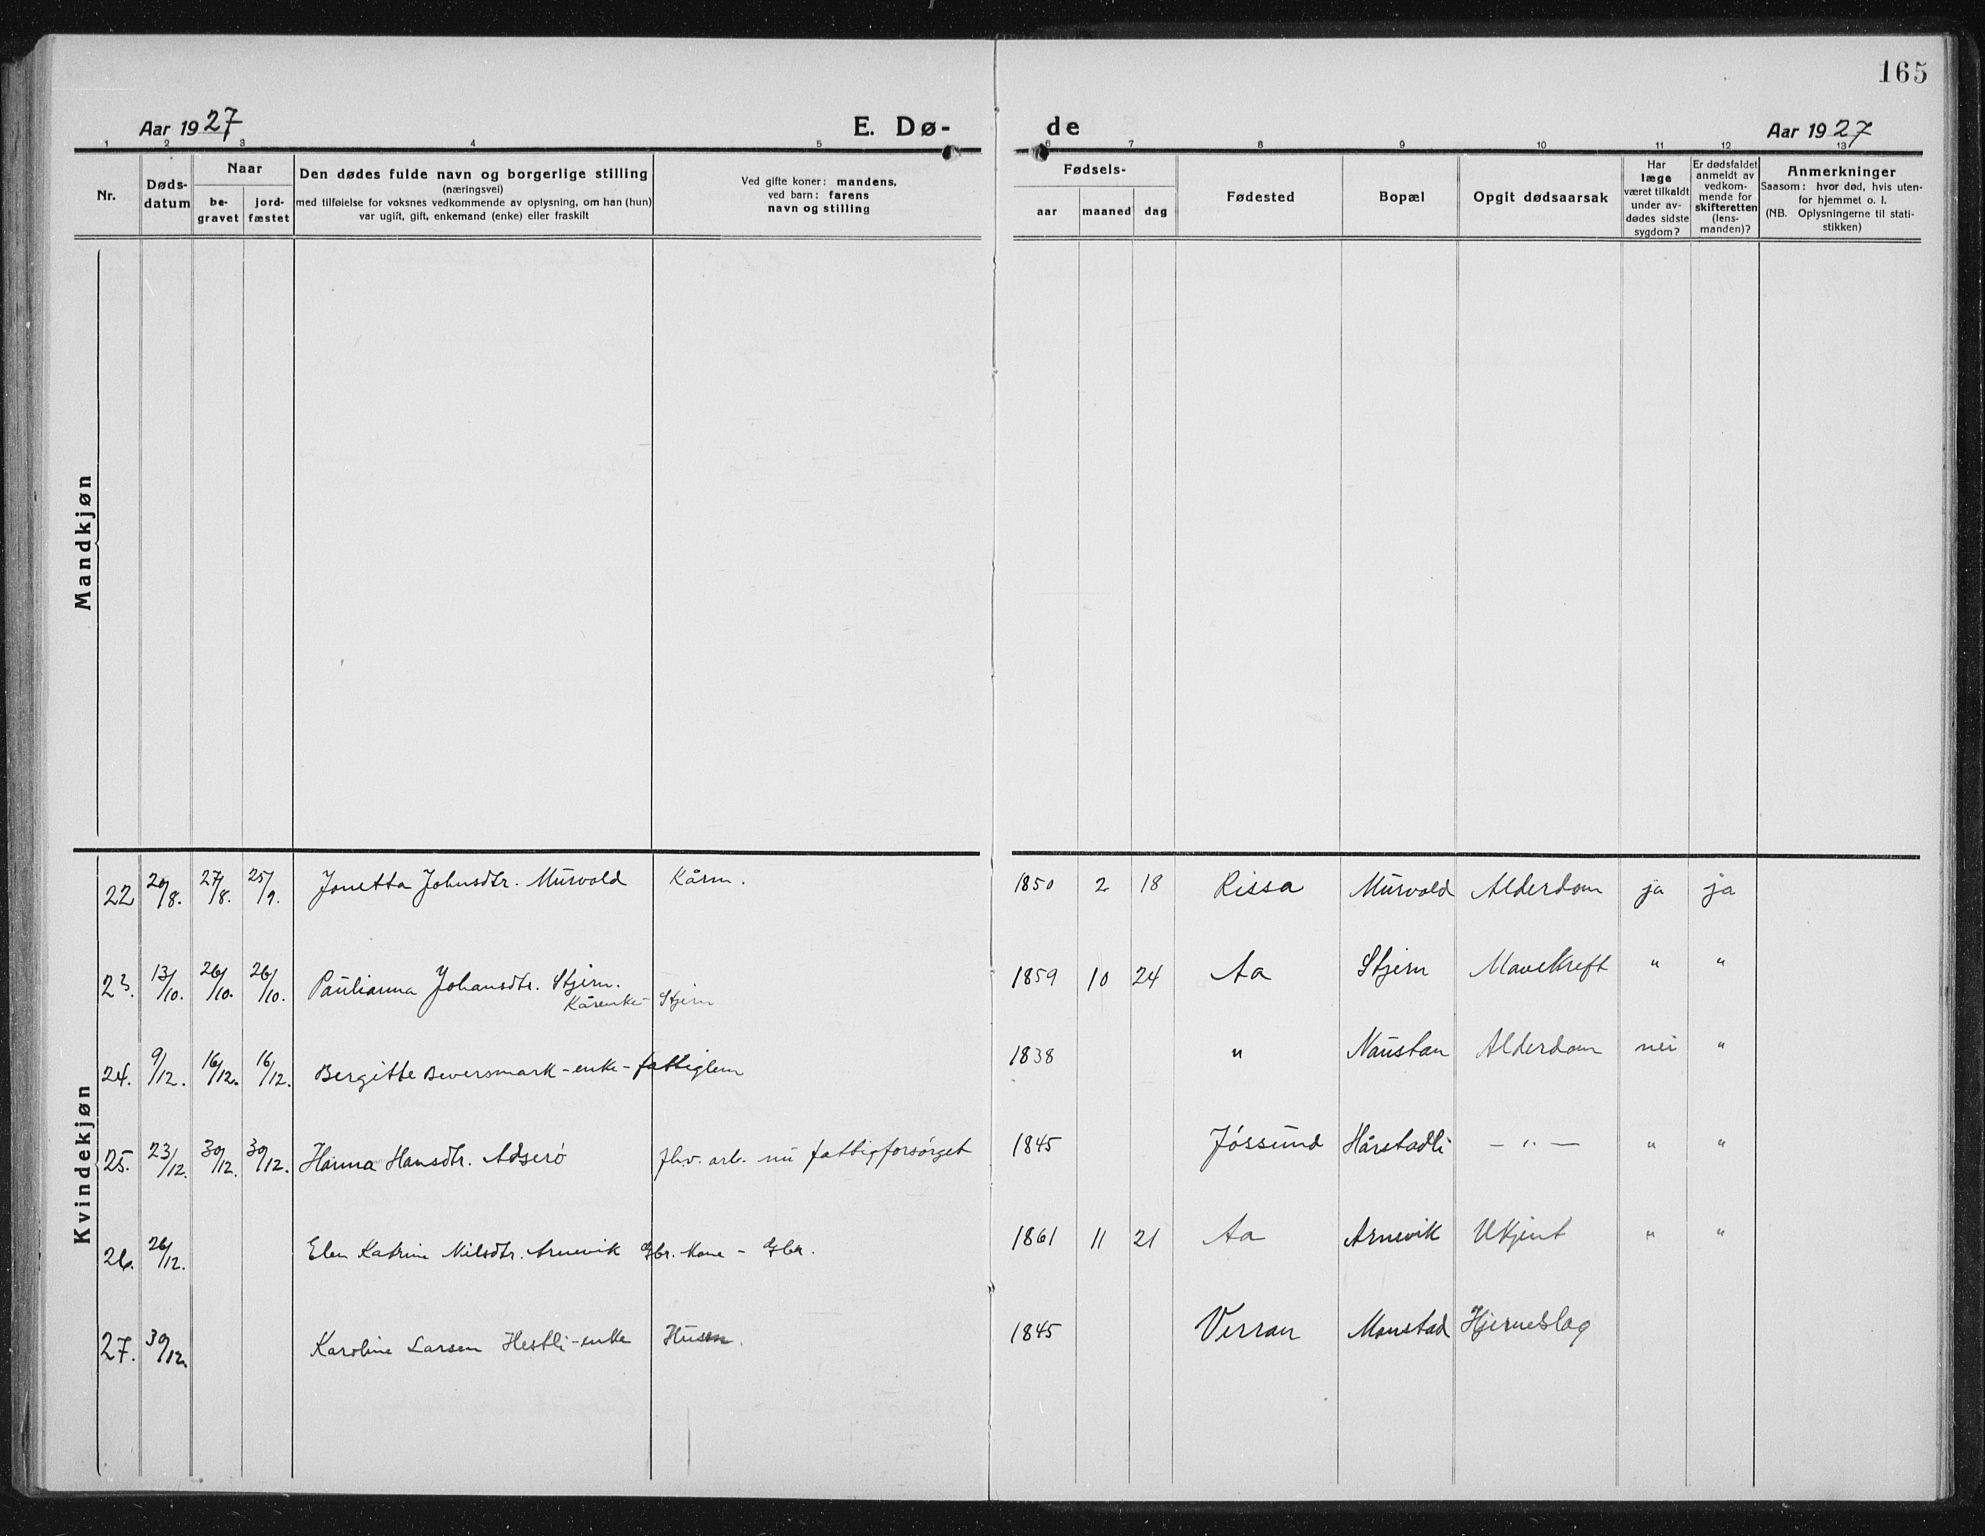 165
Aar 1927 E. Dø- de Aar 1927
1 2 3 4 5 6 7 8 9 10 11 12 13
Nr.
Døds-
datum
Naar
be-
gravet
jord-
fæstet
Den dødes fulde navn og borgerlige stilling
(næringsvei)
med tilføielse for voksnes vedkommende av oplysning, om han (hun)
var ugift, gift, enkemand (enke) eller fraskilt
Ved gifte koner: mandens,
ved barn: farens
navn og stilling
Fødsels-
aar maaned dag
Fødested
Bopæl
Opgit dødsaarsak
Har
læge
været tilkaldt
under av-
dødes sidste
sygdom?
Er dødsfaldet
anmeldt av
vedkom-
mende for
skifteretten
(lens-
manden)?
Anmerkninger
Saasom: hvor død, hvis uten-
for hjemmet o. l.
(NB. Oplysningerne til stati-
stikken)
Mandkjøn
Kvindekjøn
22 20/8. 27/8. 25/9. Jonetta Johnsdtr. Murvold Kårm. 1850 2 18 Rissa Murvold Alderdom ja ja
23. 13/10. 26/10. 26/10. Paulianna Johansdtr. Stjern. 1859 10 24 Aa Stjern Mavekreft " "
Kårenke - Stjern
24. 9/12. 16/12. 16/12. Bergitte Beversmark - enke - fattiglem 1838 " Naustan Alderdom nei "
25. 23/12. 30/12. 30/12. Hanna Hansdtr. Adserö fhv. arb. nu fattigforsörget 1845 Jössund Hårstadli - " - " "
26. 26/12. Elen Katrine Nilsdtr. Arnevik Gbr. Kone - Gbr. 1861 11 21 Aa Arnevik Ukjent " "
27. 30/12. Karoline Larsen Hestli - enke Husm. 1845 Verran Monstad Hjerneslag